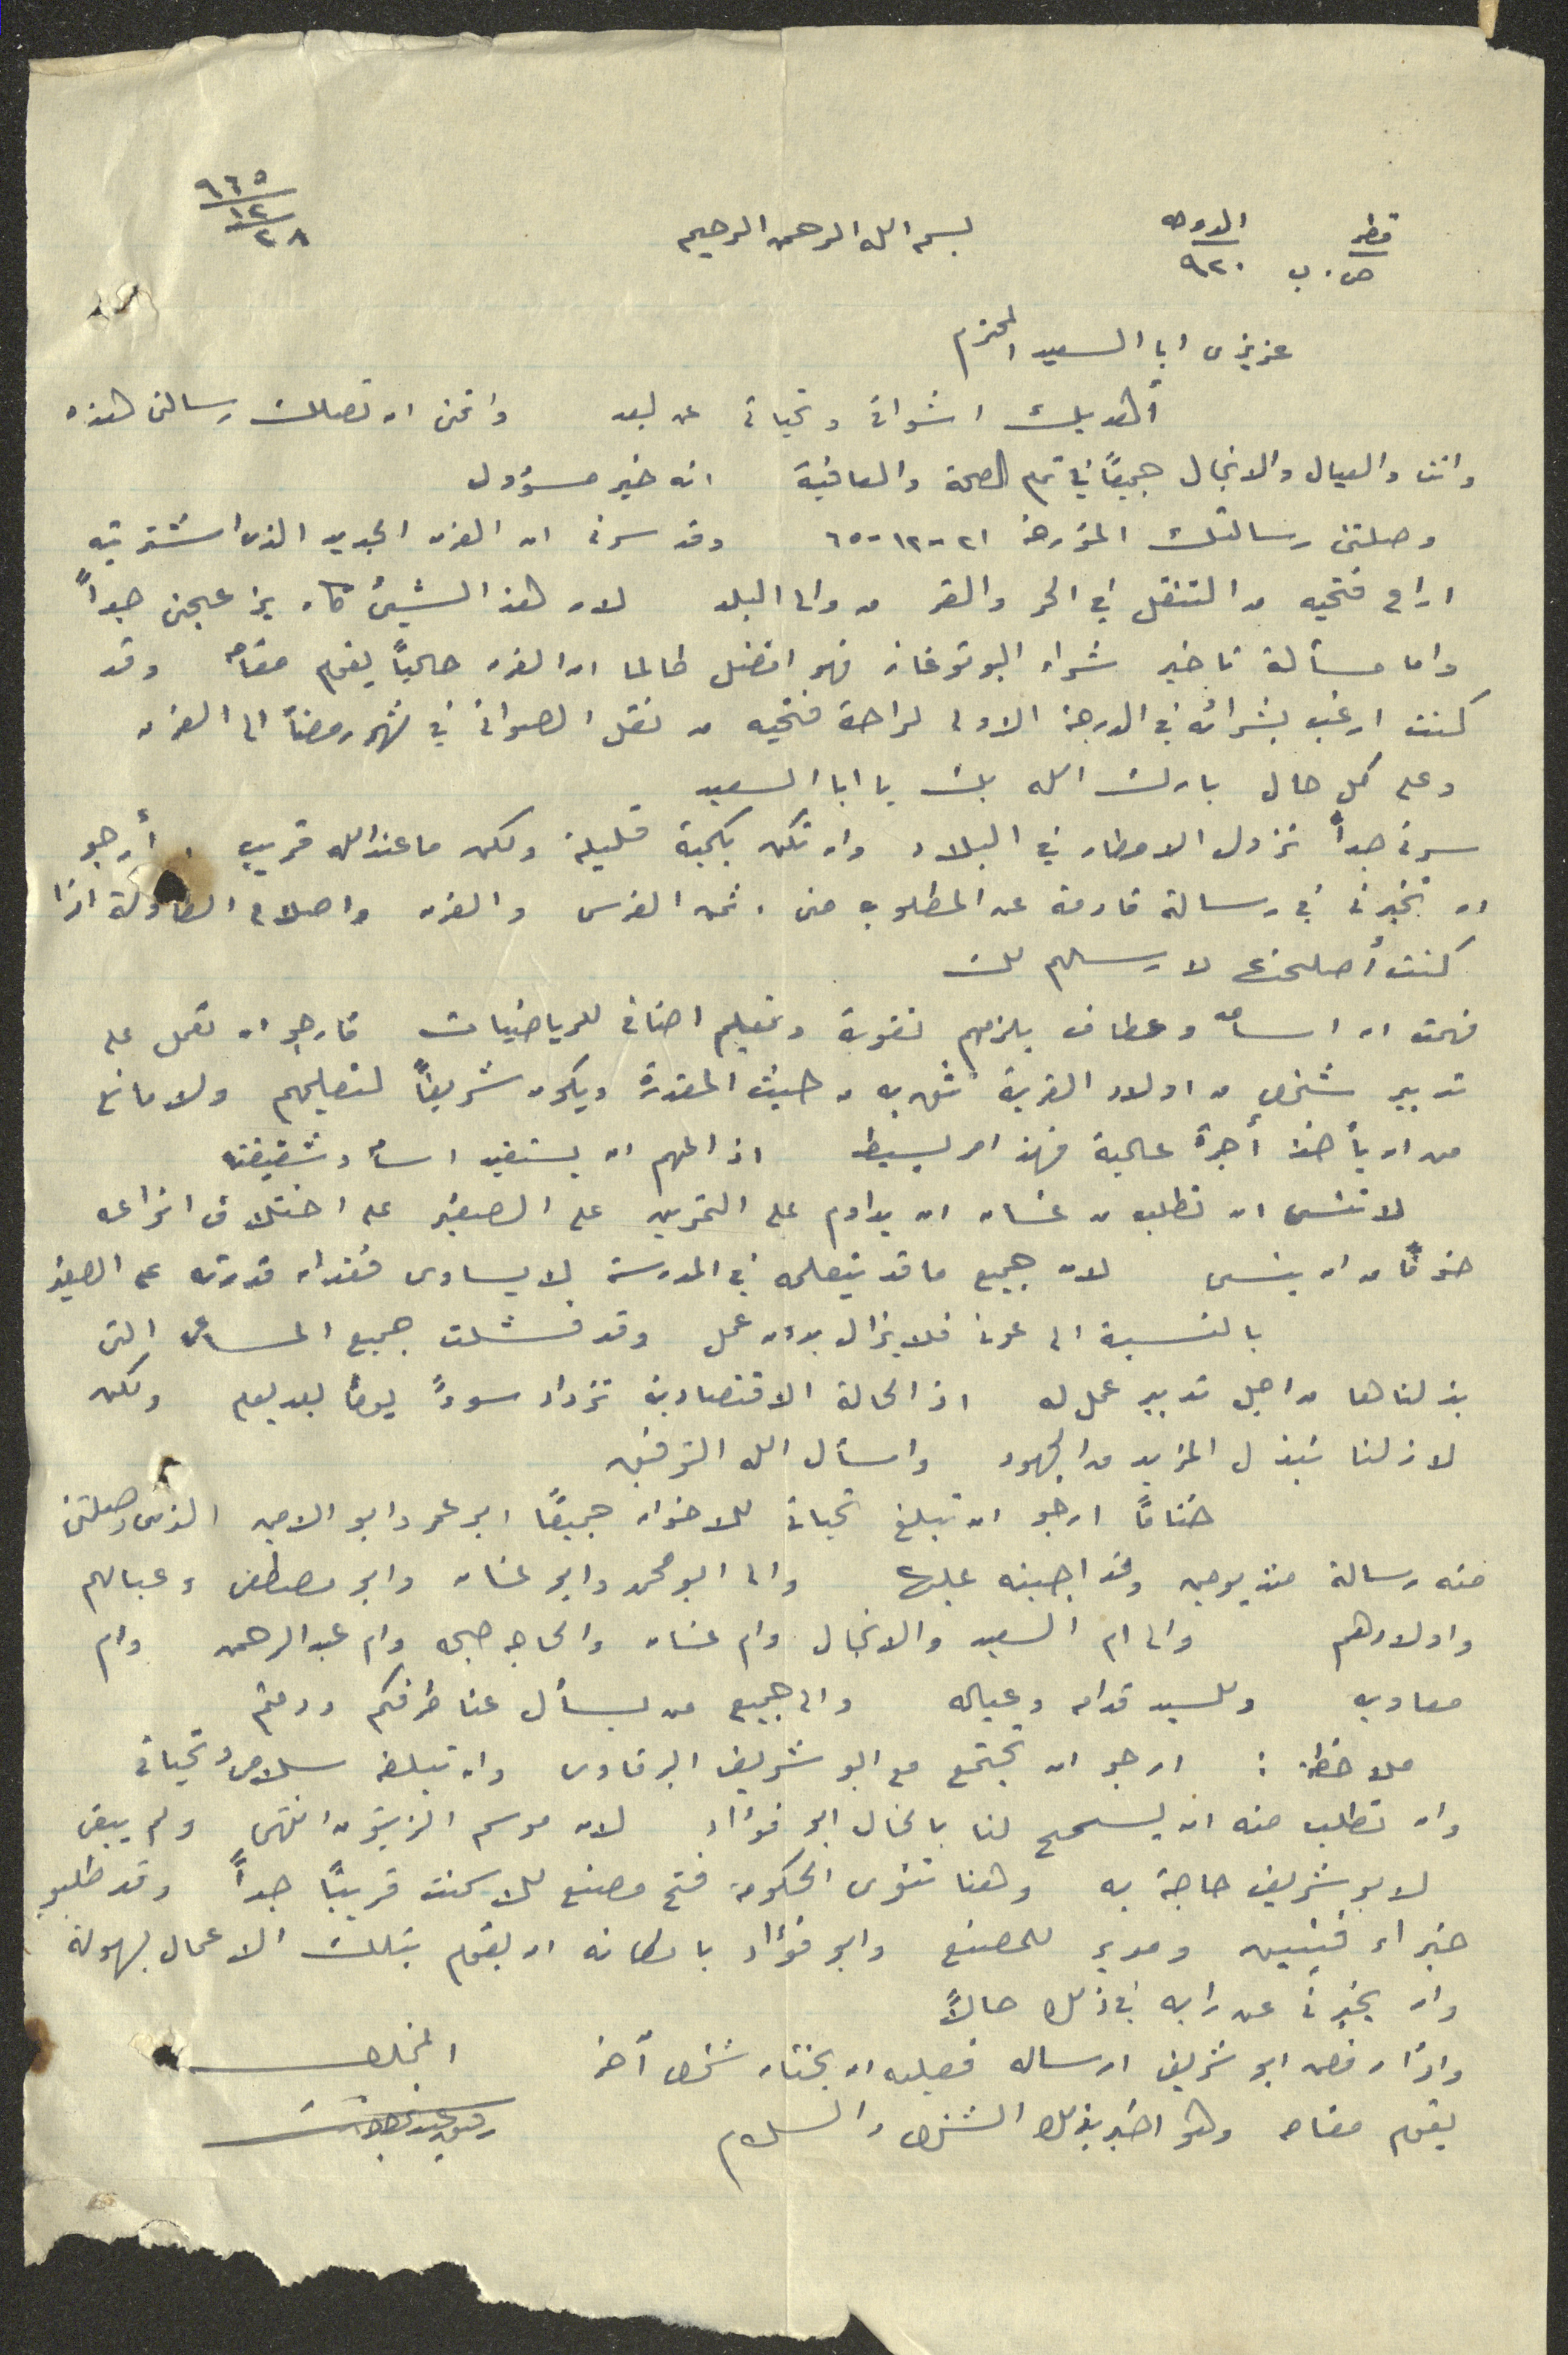 قطر الدوحه بسم الله الرحمن الرحيم ٩٦٥
ص.ب ٩٢٠ ١٢
٢٨
عزيزي ابا السعيد المحترم
أهديك اشواقي وتحياتي عن بعد واتمنى ان تصلك رسالتي هذه
وانت والعيال والانجال جميعاً في تمام الصحة والعافية انه خير مسؤول
وصلتني رسالتك المؤرخة ٢١-١٢-٦٥ وقد سرني ان الفرن الجديد الذي اشتريته
اراح فتحيه من التنقل في الحر والقر من والى البلد لان هذا الشيئ كان يزعجني جداً
واما مسألة تاخير شراء البوتوغاز فهو افضل طالما ان الفرن حالياً يقوم مقامه وقد
كنت ارغب بشرائه في الدرجة الاولى لراحة فتحيه من نقل الصواني في شهر رمضان الى الفرن
وعلى كل حال بارك الله بك يا ابا السعيد
سرني جداً نزول الامطار في البلاد وان تكن بكمية قليلة ولكن ما عند الله قريب . أرجو
ان تخبرني في رسالة قادمة عن المطلوب مني . ثمن الفرس والفرن واصلاح الطاولة اذا
كنت أصلحتها لارسلهم لك
فهمت ان اسامه وعطاف يلزمهم تقوية وتعليم اضافي للرياضيات فارجو ان تعمل على
تدبير شخص من اولاد القرية تثق به من حيث المقدرة ويكون شريفاً لتعليمهم ولا مانع
من ان يأخذ أجرة عالية فهذا امر بسيط اذ المهم ان يستفيد اسامه وشقيقته
لا تنسى ان تطلب من غسان ان يداوم على التمرين على الصفير على اختلاف انواعه
خوفاً من ان ينسى لان جميع ما قد يتعلمه في المدرسة لا يساوي فقدان قدرته على الصفير
بالنسبة الى عوني فلا يزال بدون عمل وقد فشلت جميع المساعي التي
بذلناها من اجل تدبير عمل له اذ الحالة الاقتصادية تزداد سوءً يوماً بعد يوم ولكن
لا زلنا نبذل المزيد من الجهود واسأل الله التوفيق
ختاماً ارجو ان تبلغ تحياتي للاخوان جميعاً ابو عمر وابو الامين الذي وصلتني
منه رسالة منذ يومين وقد اجبته عليها والى ابو محمد وابو غسان وابو مصطفى وعيالهم
واولادهم والى ام السعيد والانجال وام غسان والحاجه صبحه وام عبد الرحمن وام
معاويه وللسيد قدام وعياله والى جميع من يسأل عنا طرفكم ودمتم
ملاحظة : ارجو ان تجتمع مع ابو شريف البرقاوي وان تبلغه سلامي وتحياتي
وان تطلب منه ان يسمح لنا بالخال ابو فؤاد لان موسم الزيتون انتهى ولم يبقى
لابو شريف حاجة به وهنا تنوي الحكومة فتح مصنع للاسمنت قريباً جداً وقد طلبو
خبراء فنيين ومدير للمصنع وابو فؤاد بامكانه ان يقوم بتلك الاعمال بسهولة
وان يخبرني عن رايه في ذلك حالاً
واذا رفض ابو شريف ارساله فعليه ان يختار شخص أخر المخلص
يقوم مقامه وهو اخبر بذلك الشخص والسلام